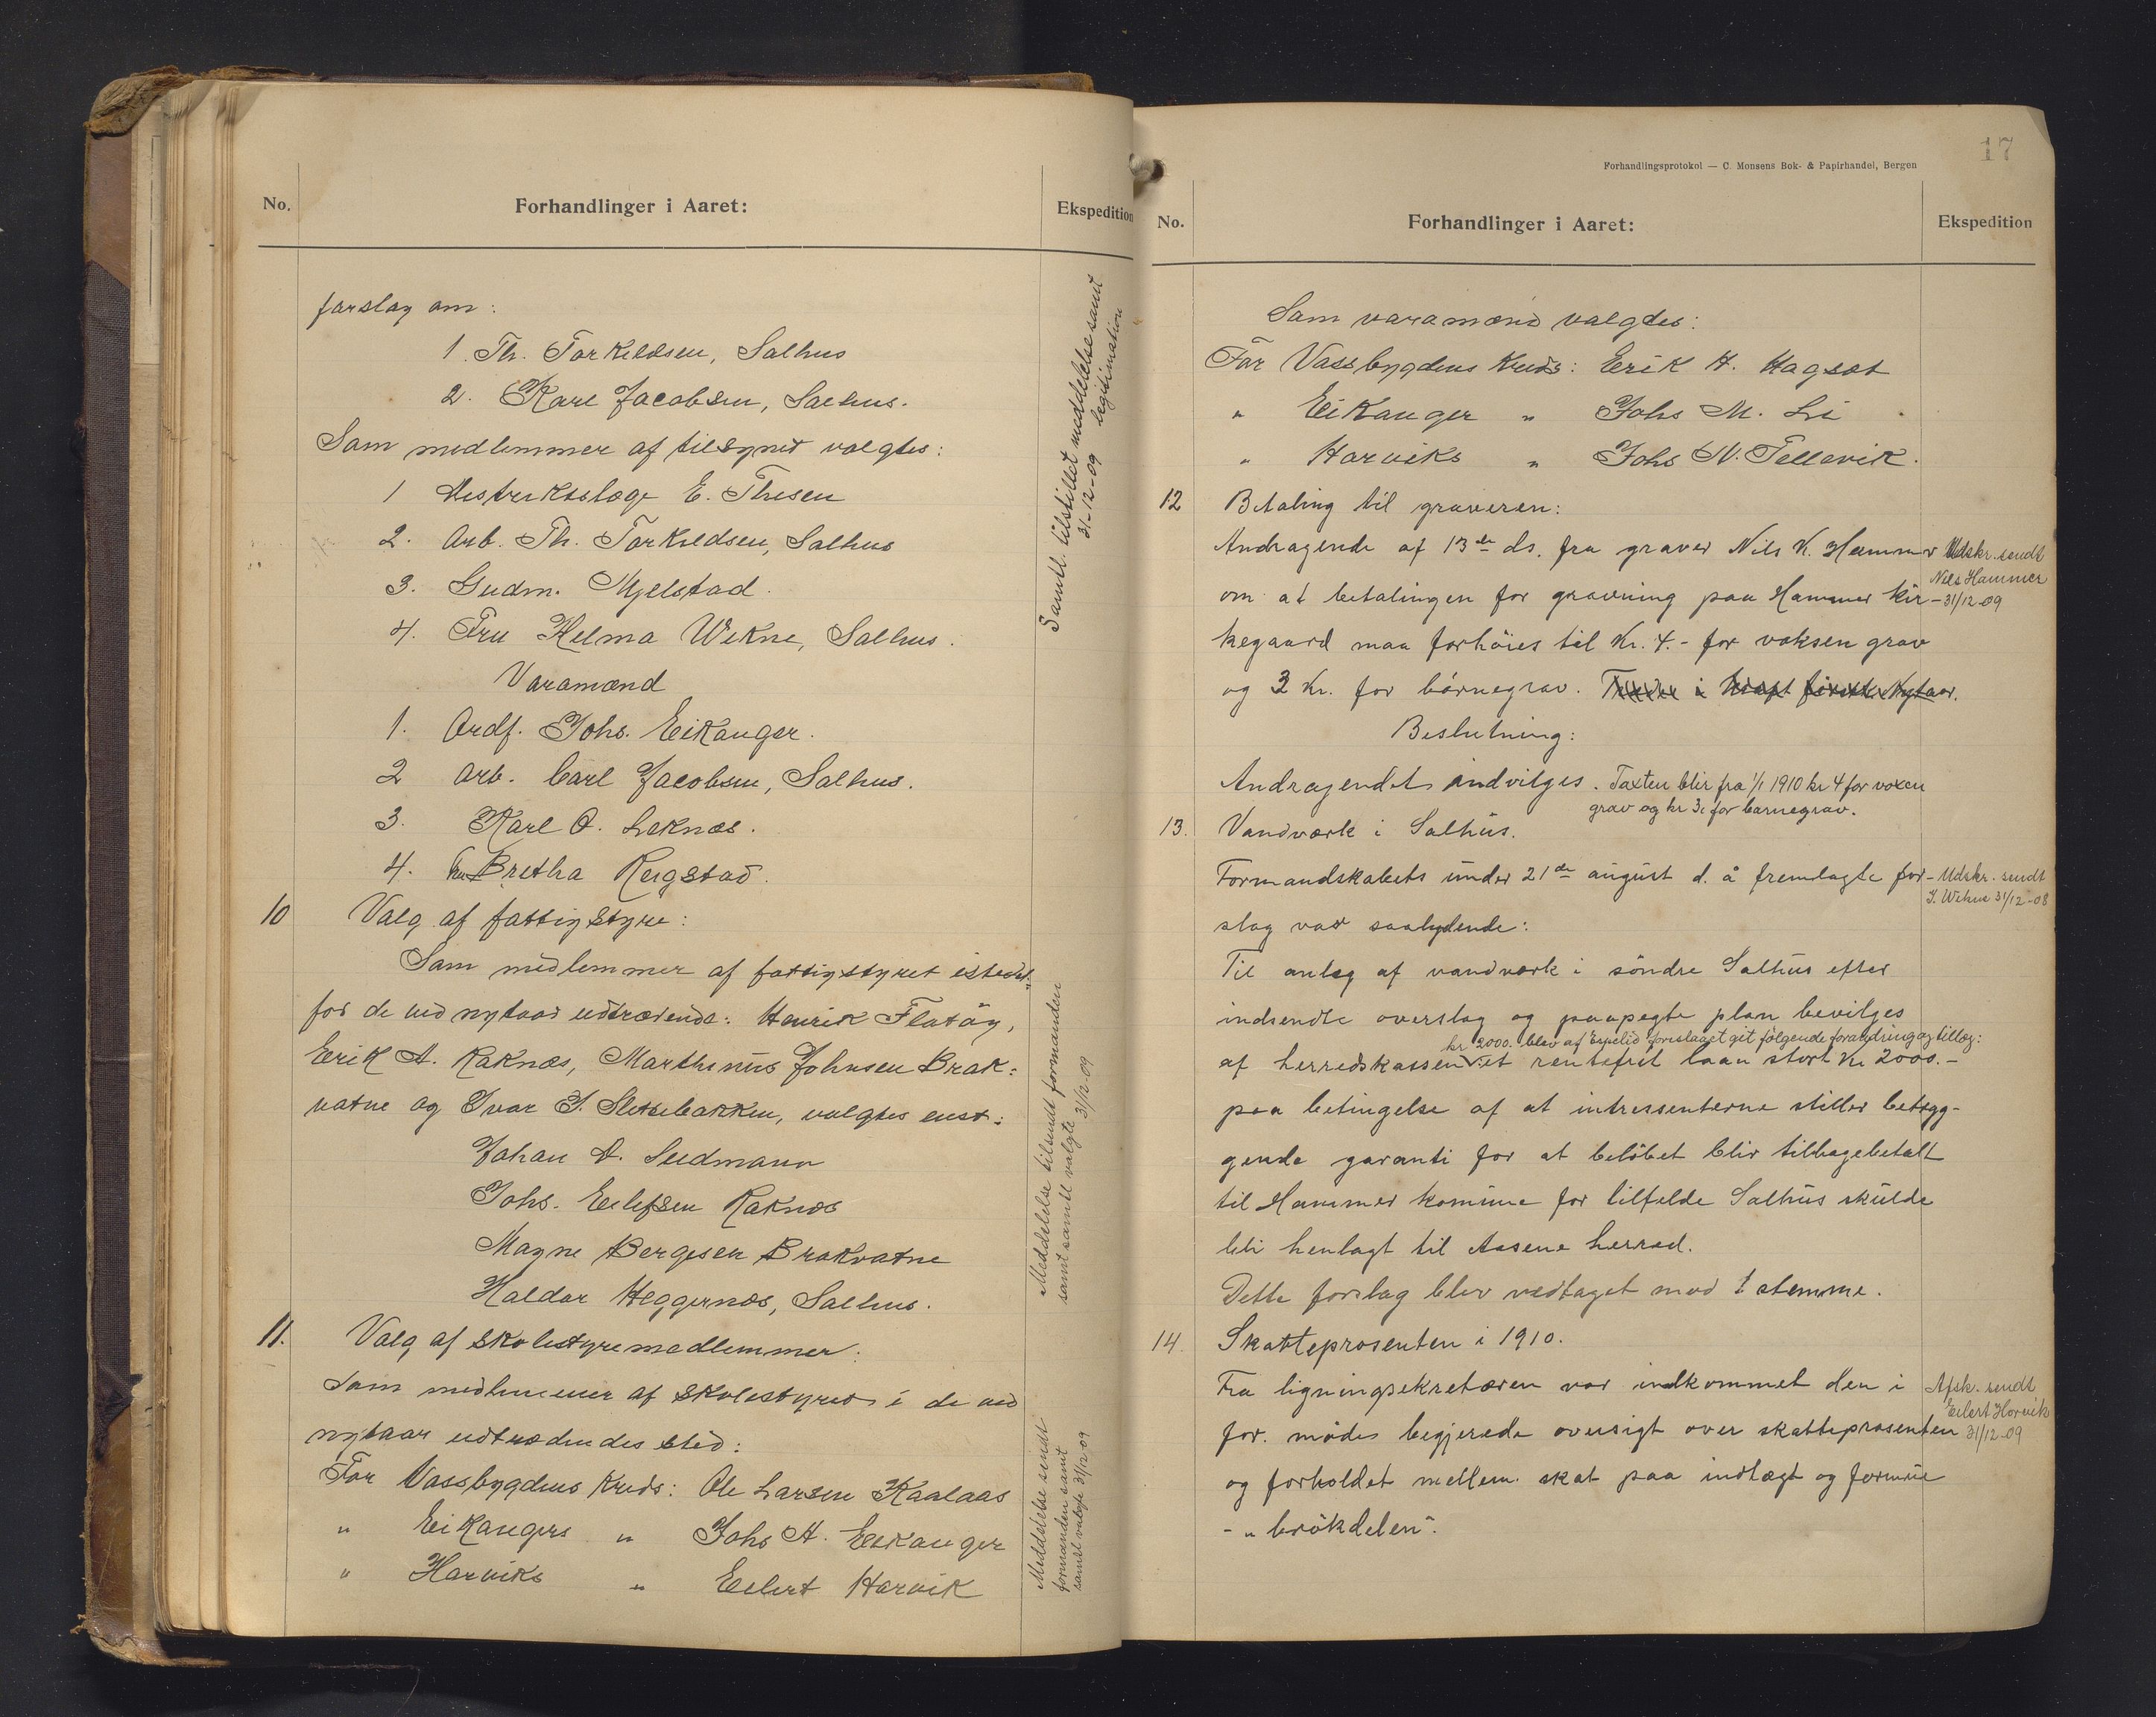 No.
Forhandlinger i Aaret:
Ekspedition
forslag om:
1. Th. Torkildsen, Salhus
2. Karl Jacobsen, Salhus.
Som medlemmer af tilsynet valgtes:
1 Distriktslæge E. Thesen
2. Arb. Th. Torkildsen, Salhus
3. Gudm. Mjelstad.
4. Fru Helma Wikne, Salhus.
Varamænd
1. Ordf. Johs. Eikanger.
2 Arb. Carl Jacobsen, Salhus.
3. Karl O. Leknæs.
4. Fru Bretha Reigstad.
Samtl. tilstillet meddelelse samt
31-12-09 legitimation
10 Valg af fattigstyre:
Som medlemmer af fattigstyret istedet
for de ved nytaar udtrædende: Henrik Flatøy,
Erik A. Raknæs, Marthinus Johnsen Brak=
vatne og Ivar J. Sletsebakken, valgtes enst.:
Johan A. Seedmann
Johs. Eilefsen Raknæs
Magne Bergesen Brakvatne
Haldor Heggernæs, Salhus.
Meddelelse tilsendt formanden
samt samtl valgte 31/12-09
11. Valg af skolestyremedlemmer:
Som medlemmer af skolestyret i de ved
nytaar udtrædendes sted:
For Vassbygdens Kreds: Ole Larsen Kaalaas
" Eikangers " Johs A. Eikanger
" Horviks " Eilert Horvik
Meddelelse sendt
formanden samt
samtl valgte 31/12-09
17
Forhandlingsprotokol — C. Monsens Bok- & Papirhandel, Bergen
No.
Forhandlinger i Aaret:
Ekspedition
Som varamænd valgtes:
For Vassbygdens Kreds: Erik H. Hagset
" Eikanger " Johs M. Li
" Horviks " Johs N. Tellevik.
12 Betaling til graveren:
Andragende af 13de ds. fra graver Nils K. Hammer
om at betalingen for gravning paa Hammer kir-
kegaard maa forhöies til Kr. 4.- for voksen grav
og 3 Kr. for börnegrav. Træder i kraft første Nytaar.
Udskr. sendt
Nils Hammer
31/12-09
Beslutning:
Andragendet indvilges. Taxten blir fra 1/1 1910 kr 4 for voxen
grav og kr 3 for barnegrav.
13. Vandværk i Salhus.
Formandskabets under 21de august d. å fremlagte for-
slag var saalydende:
Udskr. sendt
J. Wikne 31/12-08
Til anlæg af vandværk i söndre Salhus efter
indsendte overslag og paapegte plan bevilges
kr 2000. blev af Espelid foreslaaet git følgende forandring og tillæg:
af herredskassen et rentefrit laan stort kr 2000.-
paa betingelse af at intressenterne stiller betryg-
gende garanti for at belöbet blir tilbagebetalt
til Hammer komune for tilfelde Salhus skulde
bli henlagt til Aasene herred.
Dette forslag blev vedtaget mod 1 stemme.
14. Skatteprosenten i 1910.
Fra ligningsekretæren var indkommet den i
for. möde begjerede oversigt over skatteprosenten
og forholdet mellem skat paa indtægt og formue
- " brökdelen".
Afsk. sendt
Eilert Horvik
31/12-09